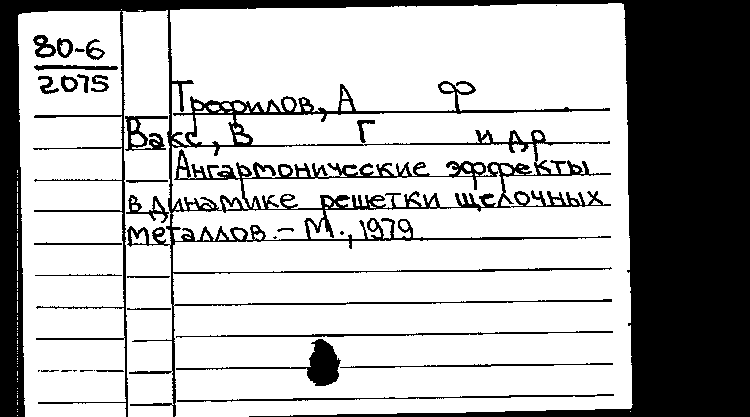 80-6
2075
Трефилов, А Ф
Вакс, В Г и др
Ангармонические эффекты
в динамике решетки щелочных
металлов. - М., 1979